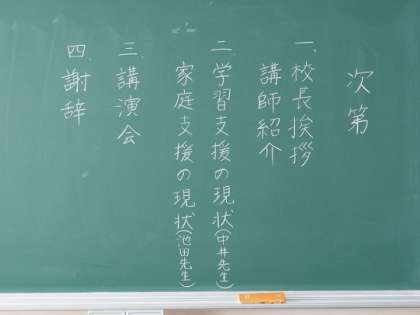 次第
一、校長挨拶
講師紹介
二、学習支援の現状(中井先生)
家庭支援の現状(池田先生)
三、講演会
四、謝辞